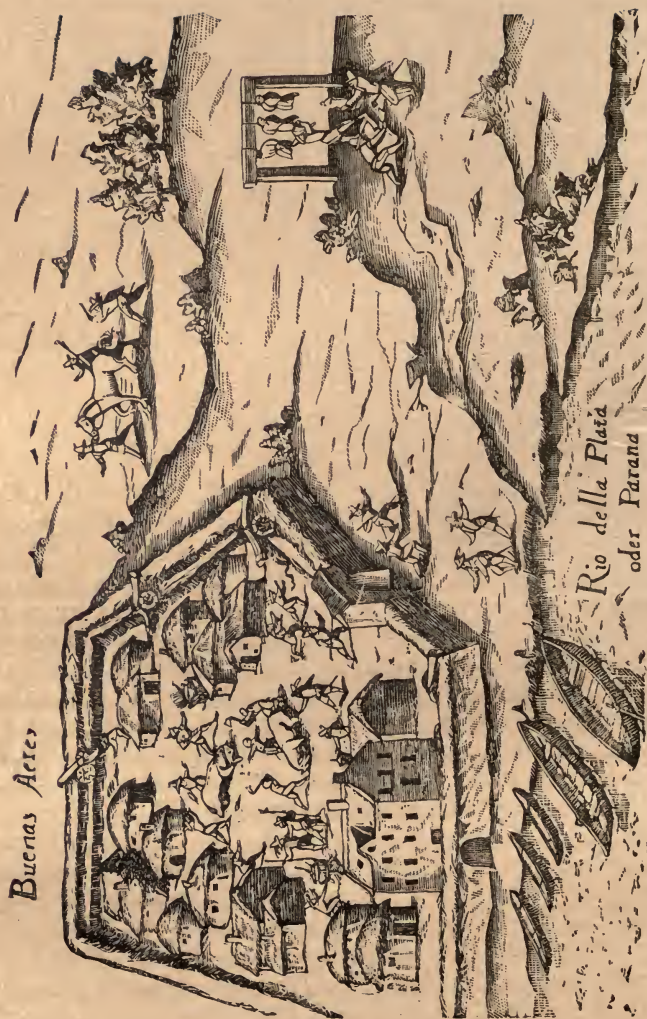 Buenas Aeres
Rio della Plata
oder Parana